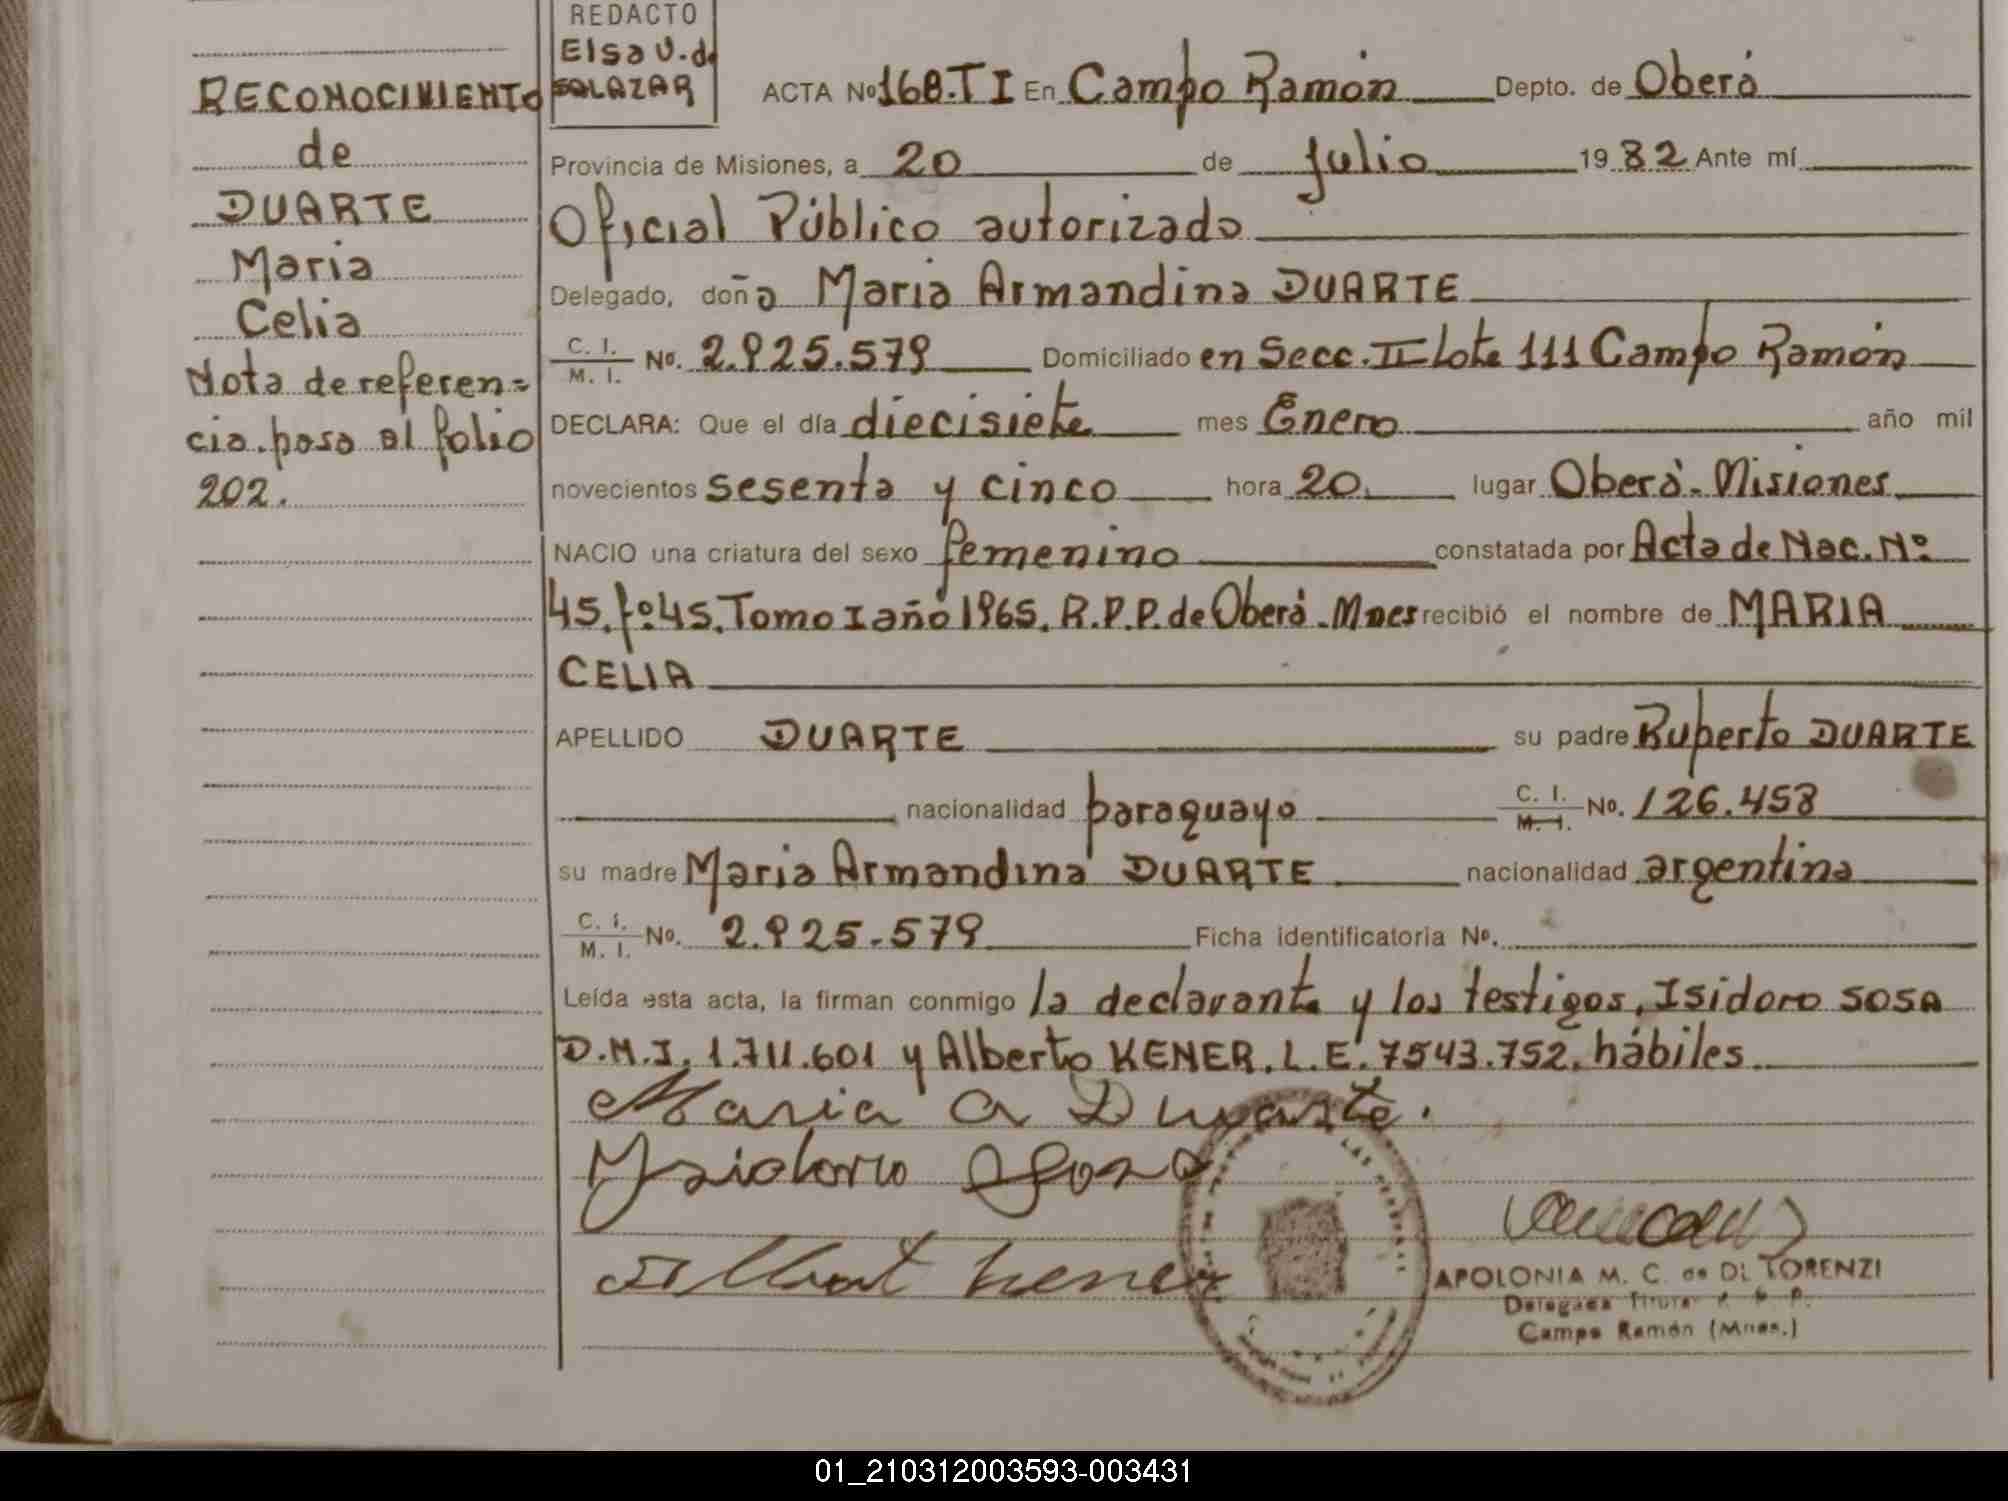 REDACTO
Elsa V. de
SALAZAR
RECONOCIMIENTO
de
DUARTE
Maria
Celia
Nota de referen=
cia. pasa al folio
202.
ACTA Nº 168.TI En Campo Ramón Depto. de Oberá
Provincia de Misiones, a 20 de julio 1982 Ante mí
Oficial Público autorizado
Delegado, doña Maria Armandina DUARTE
C. I. / M. I. No. 2.925.579 Domiciliado en Secc. II Lote 111 Campo Ramón
DECLARA: Que el día diecisiete mes Enero año mil
novecientos sesenta y cinco hora 20. lugar Oberá - Misiones
NACIO una criatura del sexo femenino constatada por Acta de Nac. Nº
45. fº 45. Tomo I año 1965. R.P.P. de Oberá - Mnes recibió el nombre de MARIA
CELIA
APELLIDO DUARTE su padre Ruperto DUARTE
nacionalidad paraguayo C. I. / M. I. No. 126.458
su madre Maria Armandina DUARTE nacionalidad argentina
C. I. / M. I. No. 2.925.579 Ficha identificatoria No.
Leída esta acta, la firman conmigo la declarante y los testigos, Isidoro SOSA
D.M.I. 1.711.601 y Alberto KENER. L.E. 7543.752. hábiles
Maria A Duarte.
Ysidoro Sosa
Albert Kener
APOLONIA M. C. de DI TORENZI
Delegada Titular R. P. P.
Campo Ramón (Mnes.)
01_210312003593-003431